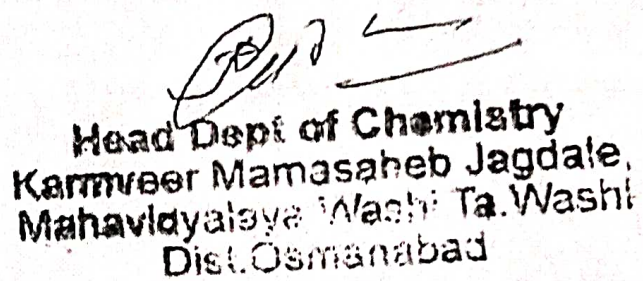 Head Dept of Chemistry
Karmveer Mamasaheb Jagdale,
Mahavidyalaya Washi Ta.Washi
Dist.Osmanabad